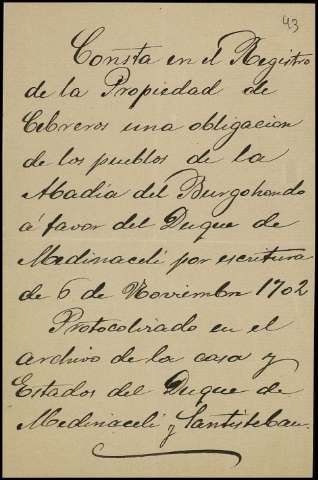 43
Consta en el Registro
de la Propiedad de
Cebreros una obligacion
de los pueblos de la
Abadía del Burgohondo
á favor del Duque de
Medinaceli por escritura
de 6 de Noviembre 1702
Protocolizado en el
archivo de la casa y
Estados del Duque de
Medinaceli y Santisteban.